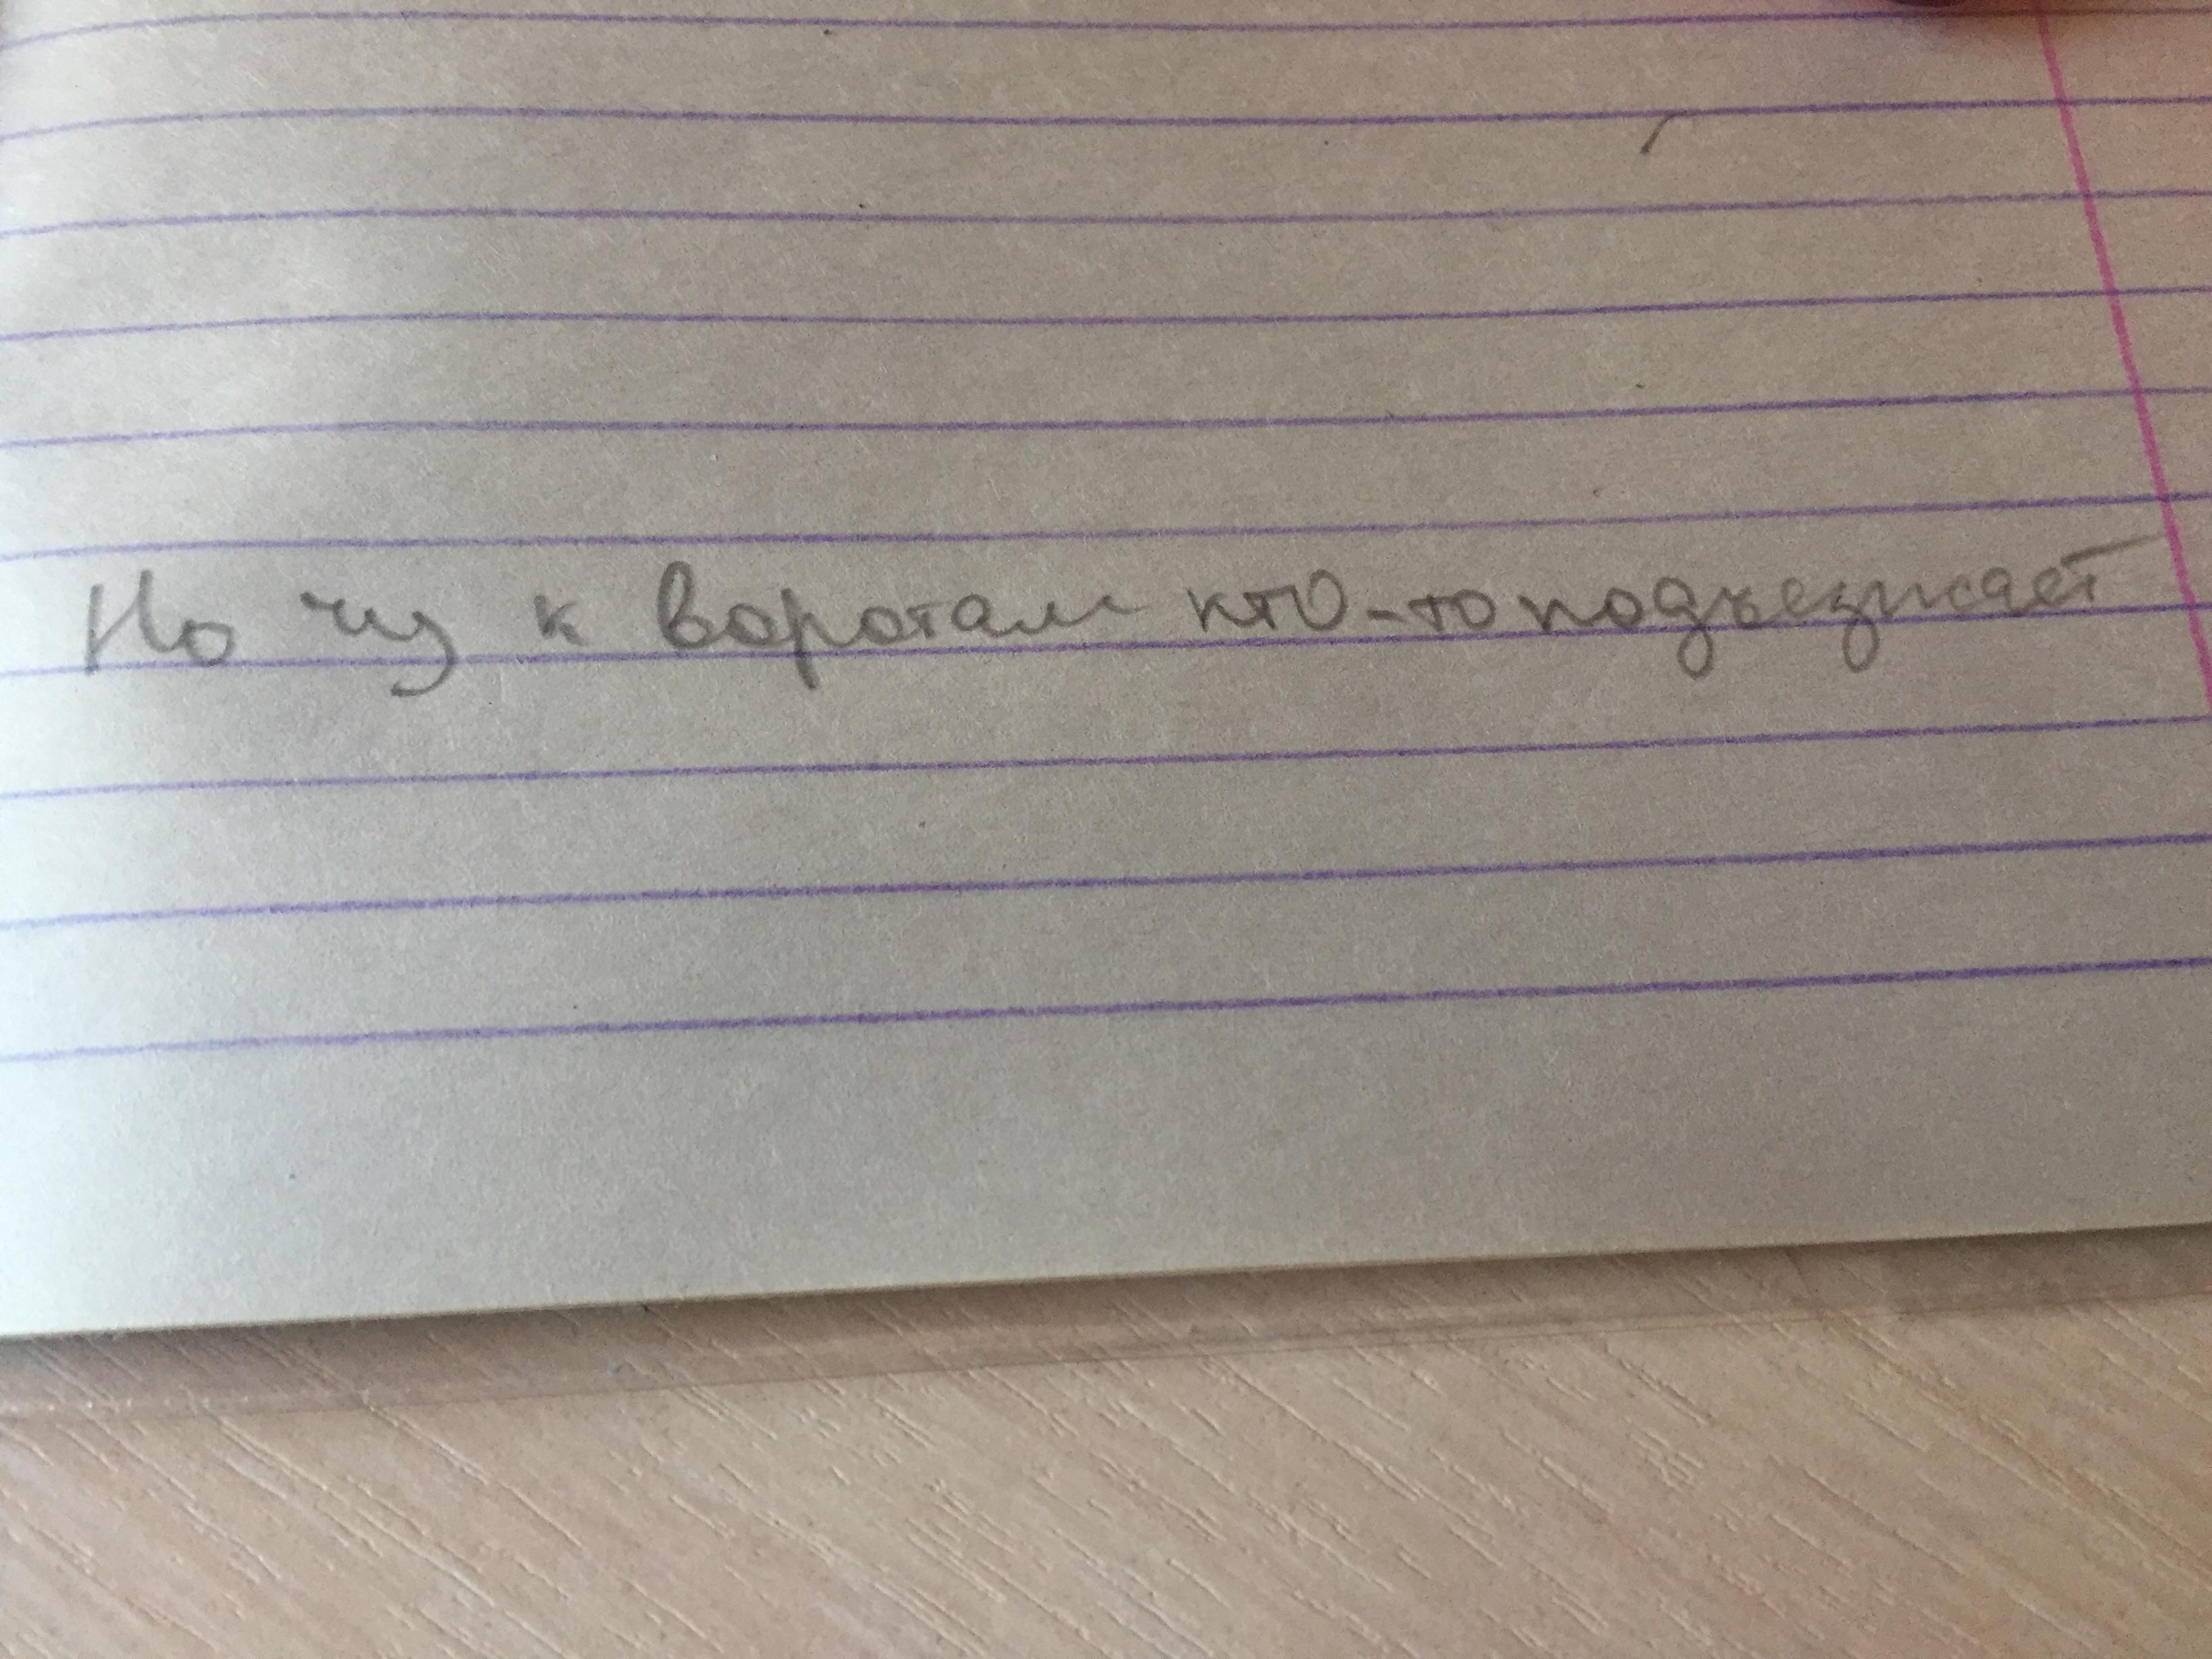 Но чу к воротам кто-то подъезжает